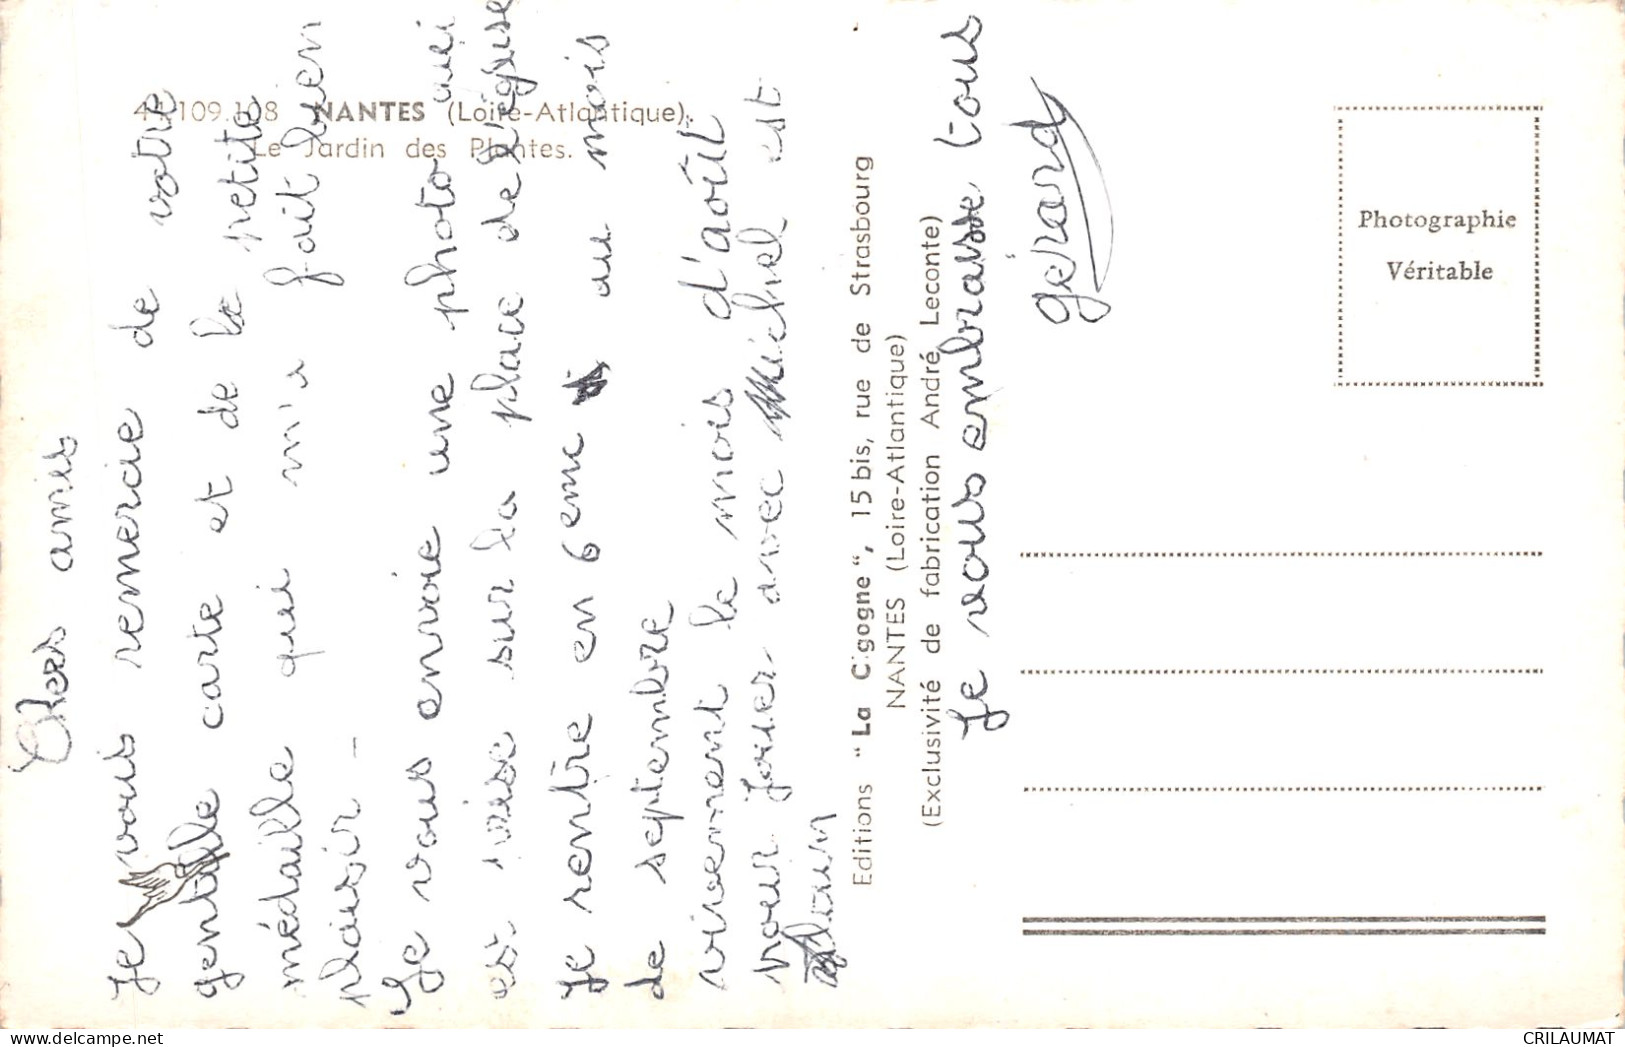 44.109.108 NANTES (Loire-Atlantique).
Le Jardin des Plantes.
Chers amis
Je vous remercie de votre
gentille carte et de la petite
médaille qui m'a fait bien
plaisir -
Je vous envoie une photo qui
est prise sur la place de l'église
Je rentre en 6 eme au mois
de septembre
vivement le mois d'août
pour jouer avec Michel et
Alain
Je vous embrasse tous
gérard
Editions "La Cigogne", 15 bis, rue de Strasbourg
NANTES (Loire-Atlantique)
(Exclusivité de fabrication André Leconte)
Photographie
Véritable
CRILAUMAT